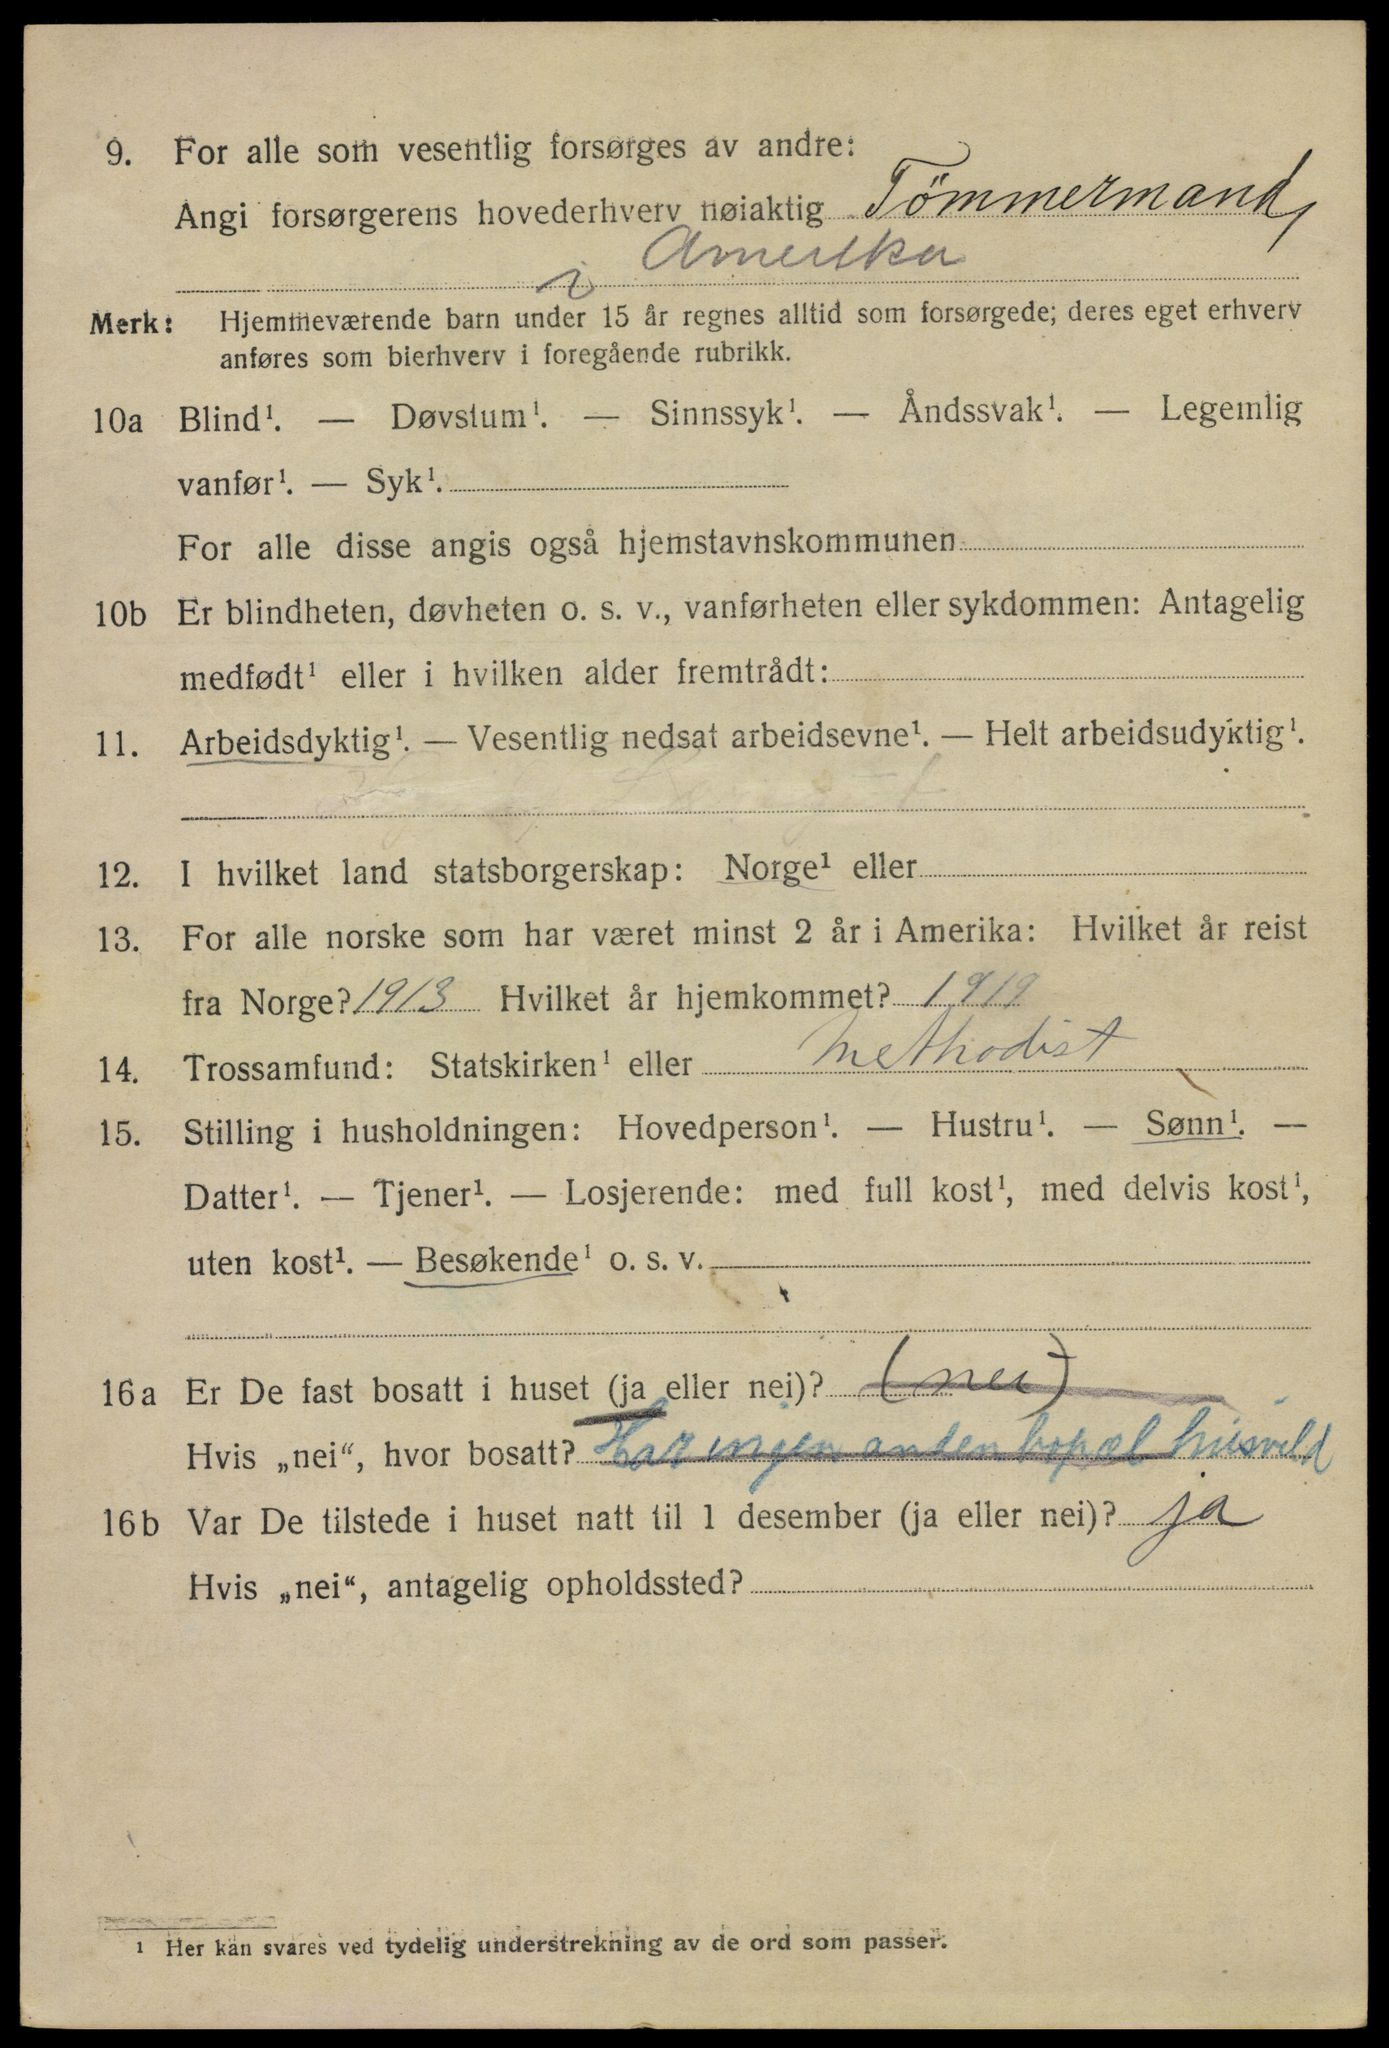 9. For alle som vesentlig forsørges av andre:
Angi forsørgerens hovederhverv nøiaktig Tömmermand,
i Amerika
Merk: Hjemmeværende barn under 15 år regnes alltid som forsørgede; deres eget erhverv
anføres som bierhverv i foregående rubrikk.
10a Blind¹. — Døvstum¹. — Sinnssyk¹. — Åndssvak¹. — Legemlig
vanfør¹. — Syk¹.
For alle disse angis også hjemstavnskommunen
10b Er blindheten, døvheten o. s. v., vanførheten eller sykdommen: Antagelig
medfødt¹ eller i hvilken alder fremtrådt:
11. Arbeidsdyktig¹. — Vesentlig nedsat arbeidsevne¹. — Helt arbeidsudyktig¹.
12. I hvilket land statsborgerskap: Norge¹ eller
13. For alle norske som har været minst 2 år i Amerika: Hvilket år reist
fra Norge? 1913 Hvilket år hjemkommet? 1919
14. Trossamfund: Statskirken¹ eller Methodist
15. Stilling i husholdningen: Hovedperson¹. — Hustru¹. — Sønn¹. —
Datter¹. — Tjener¹. — Losjerende: med full kost¹, med delvis kost¹,
uten kost¹. — Besøkende¹ o. s. v.
16a Er De fast bosatt i huset (ja eller nei)? (nei)
Hvis „nei“, hvor bosatt? Har ingen anden bopæl
16b Var De tilstede i huset natt til 1 desember (ja eller nei)? ja
Hvis „nei“, antagelig opholdssted?
¹ Her kan svares ved tydelig understrekning av de ord som passer.